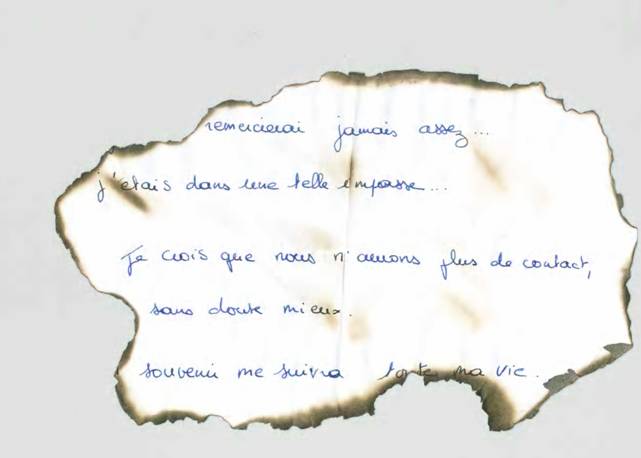 remercierai jamais assez...
j'étais dans une telle impasse...
Je crois que nous n'aurons plus de contact,
sans doute mieux.
souvenir me suivra toute ma vie.